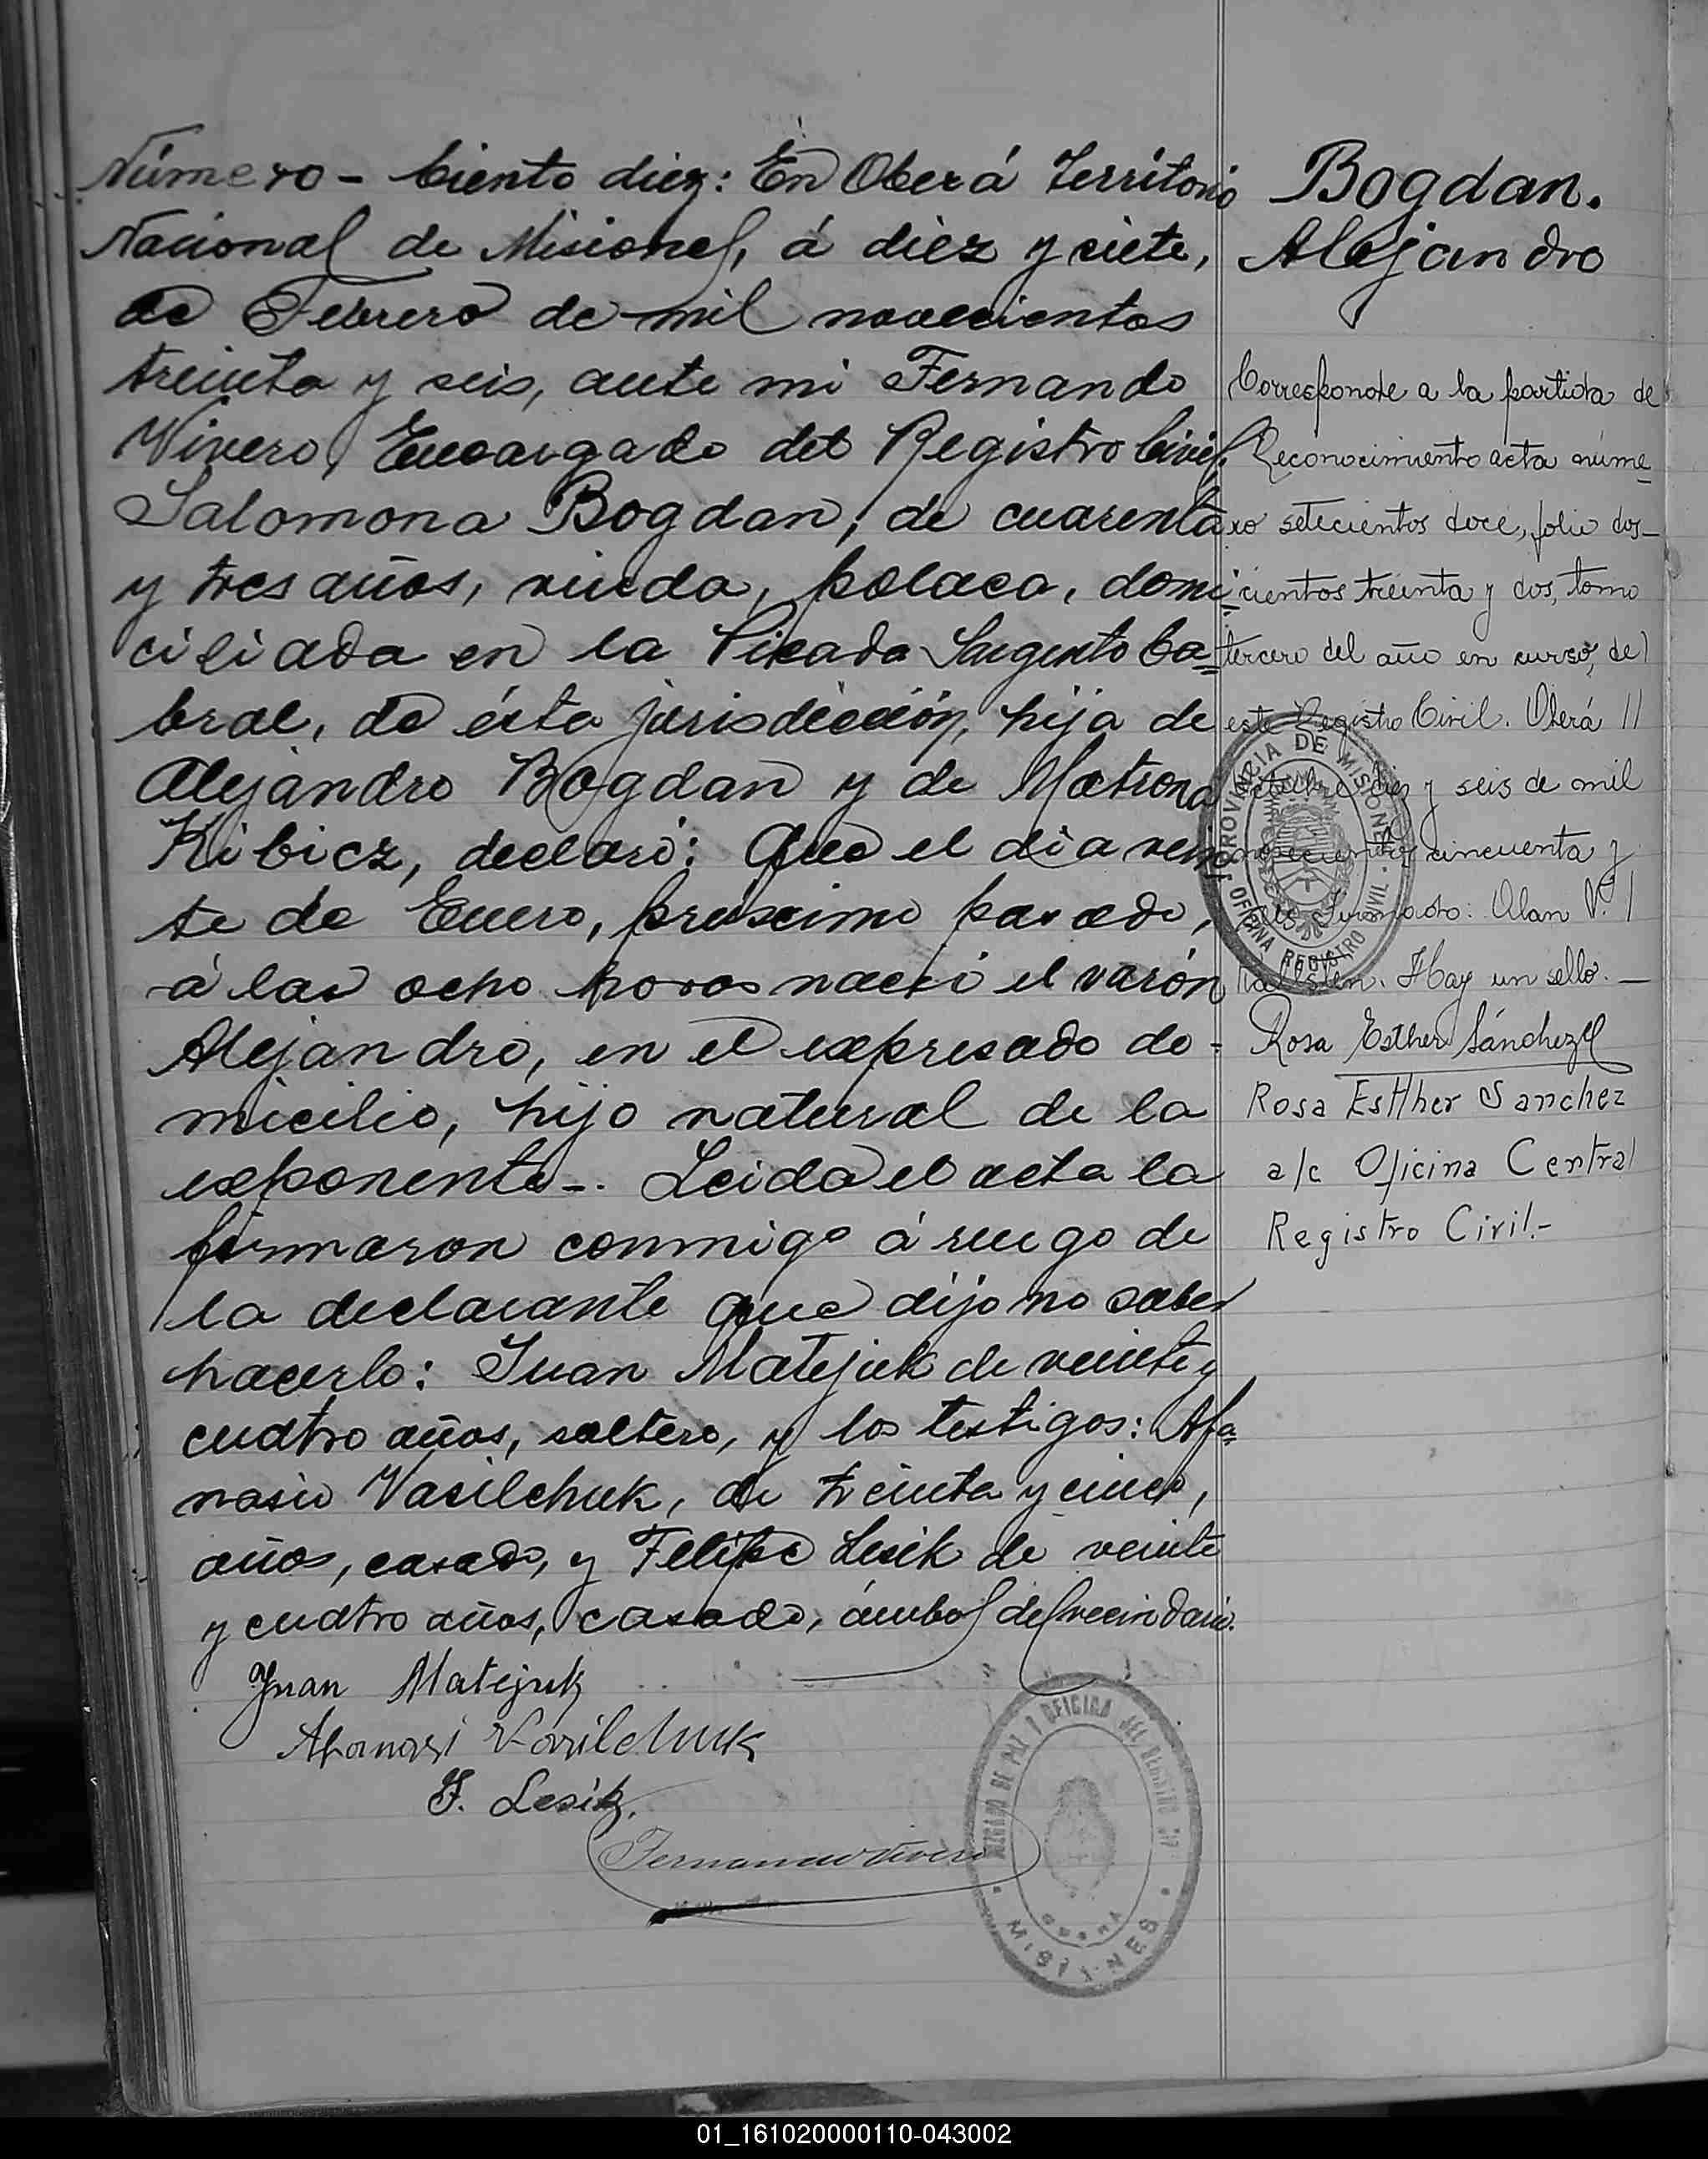 Número - Ciento diez: En Oberá Territorio
Nacional de Misiones, á diez y siete,
de Febrero de mil novecientos
treinta y seis, ante mi Fernando
Vivero, Encargado del Registro Civil,
Salomona Bogdan, de cuarenta
y tres años, viuda, polaca, domi-
ciliada en la Picada Sargento Ca-
bral, de ésta jurisdicción, hija de
Alejandro Bogdan y de Matrona
Kibicz, declaró: Que el dia vein-
te de Enero, próximo pasado,
á las ocho horas nació el varón
Alejandro, en el expresado do-
micilio, hijo natural de la
exponente-. Leida el acta la
firmaron conmigo á ruego de
la declarante que dijo no saber
hacerlo: Juan Matejuk de veinte y
cuatro años, soltero, y los testigos: Afa-
nasio Vasilchuk, de treinta y cinco,
años, casado, y Felipe Lesik de veinte
y cuatro años, casado, ámbos del vecindario.
Juan Matejuk
Afanasi Vasilchuk
F. Lesik.
Fernando Vivero
JUZGADO DE PAZ Y OFICINA DEL REGISTRO
OBERÁ
MISIONES
Bogdan.
Alejandro
Corresponde a la partida de
Reconocimiento acta núme-
ro setecientos doce, folio dos-
cientos treinta y dos, tomo
tercero del año en curso, de
este Registro Civil. Oberá //
y seis de mil
cincuenta y
Firmado: Alan V. /
Hay un sello. —
Rosa Esther Sánchez
Rosa Esther Sanchez
a/c Oficina Central
Registro Civil.-
PROVINCIA DE MISIONES
OFICINA REGISTRO CIVIL
01_161020000110-043002